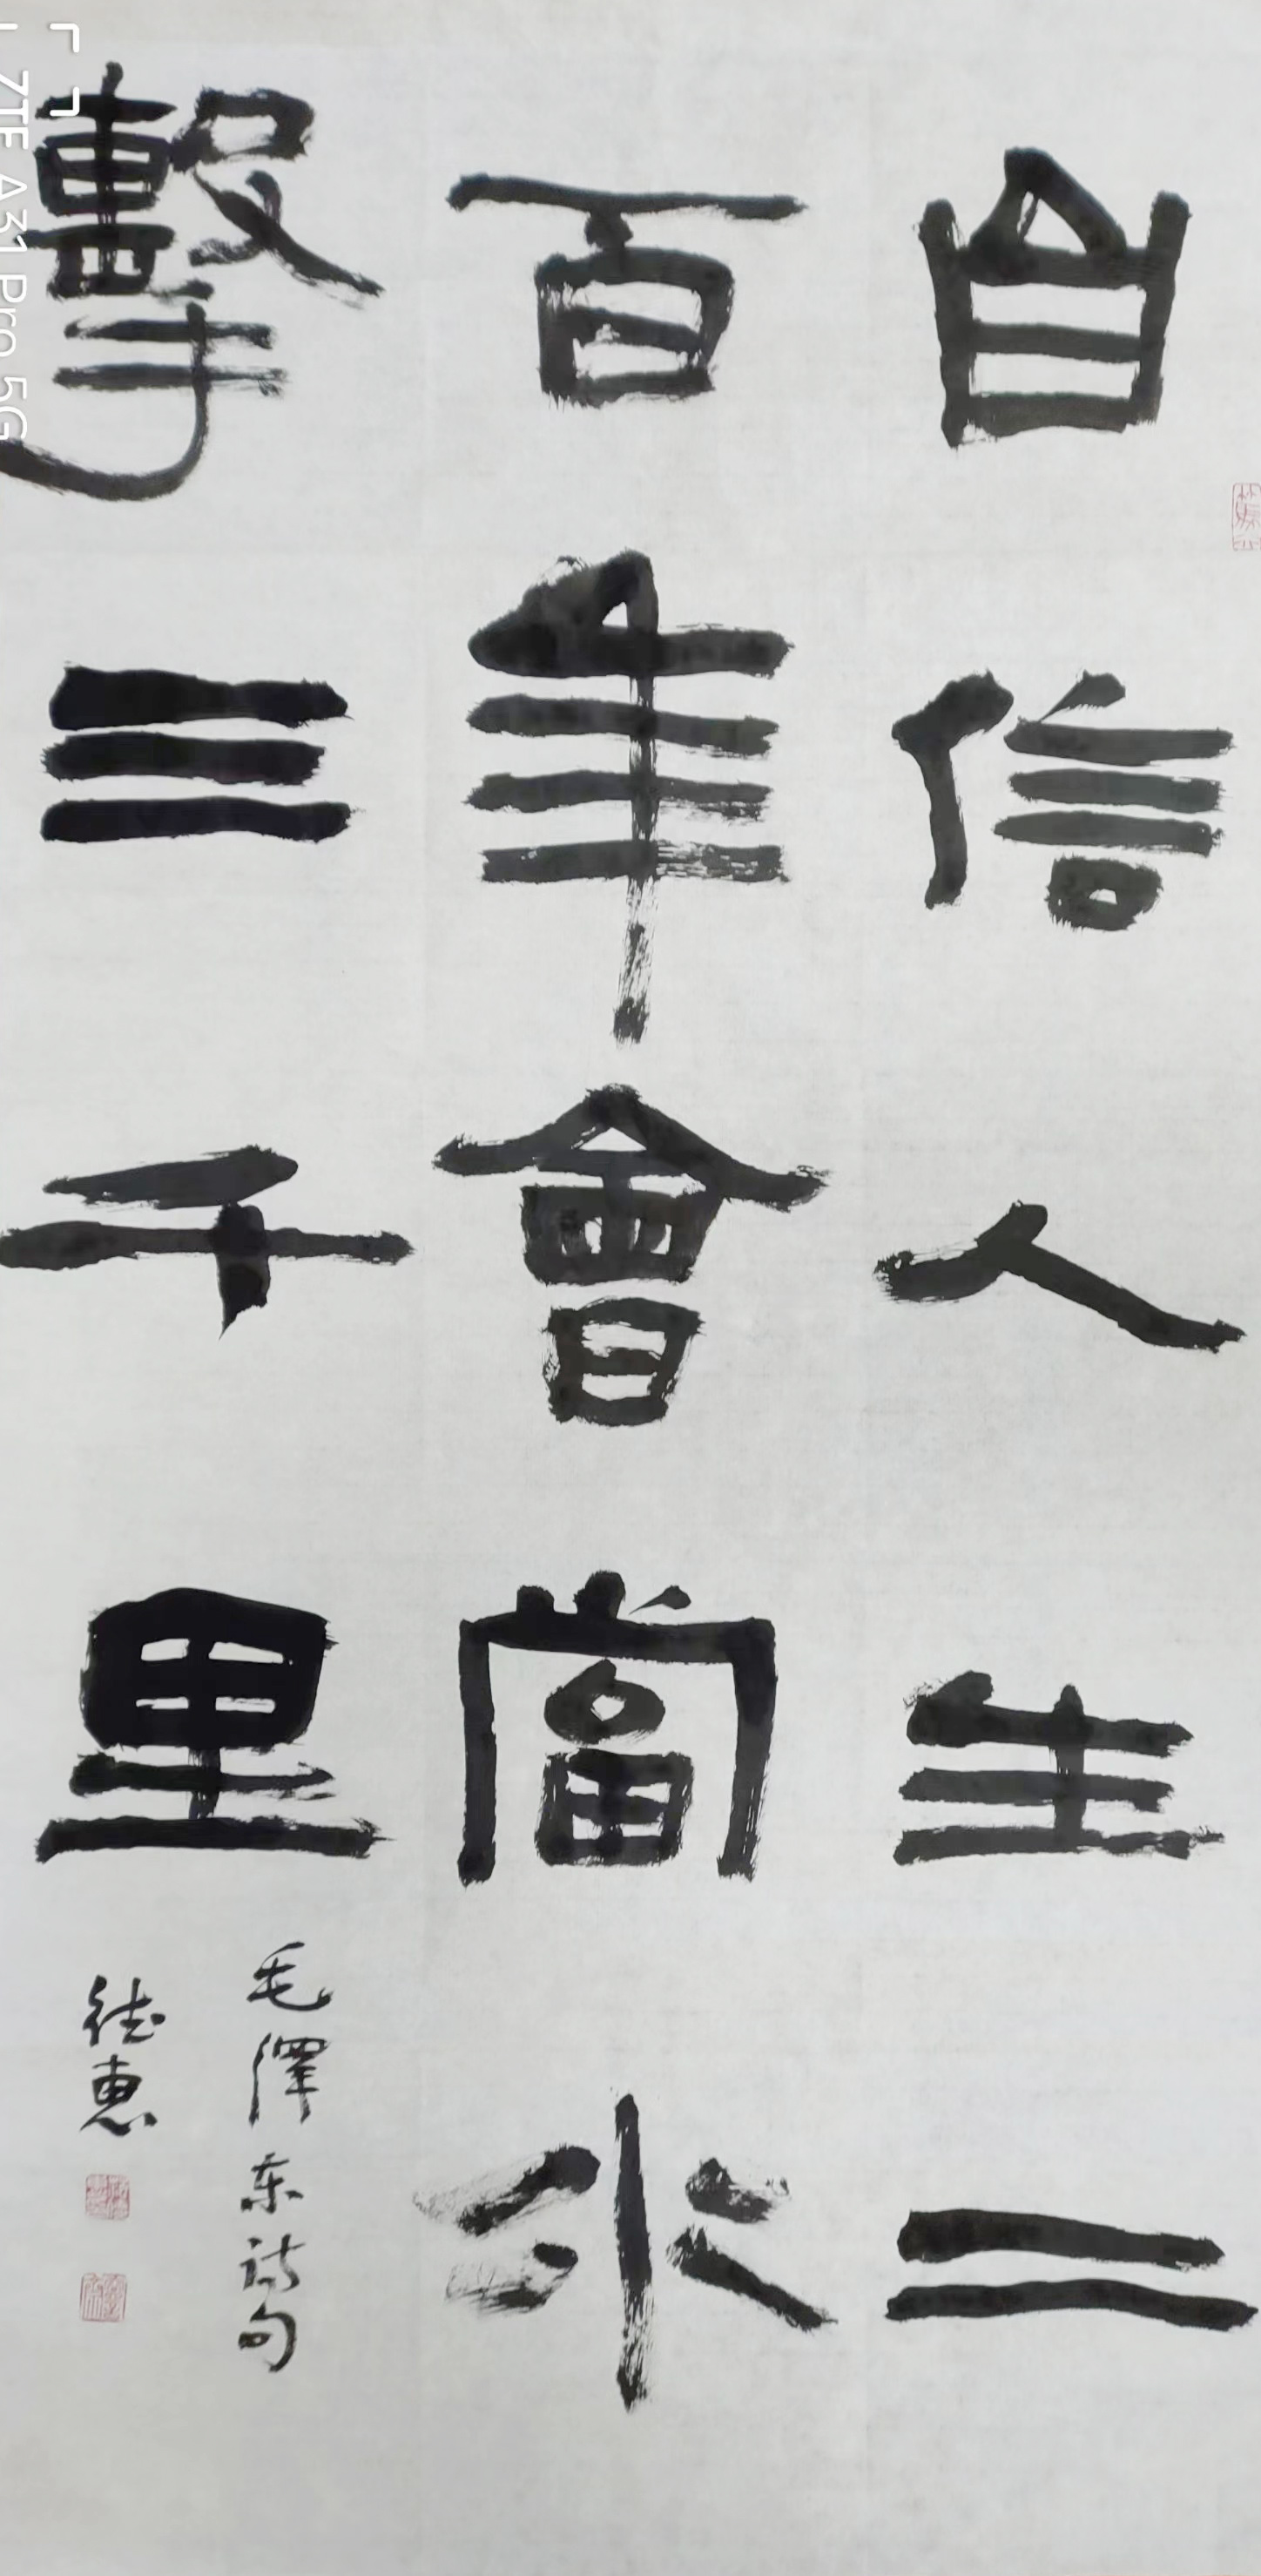 自信人生二
百年會當水
擊三千里
毛澤东詩句
德惠
ZTE A31 Pro 5G